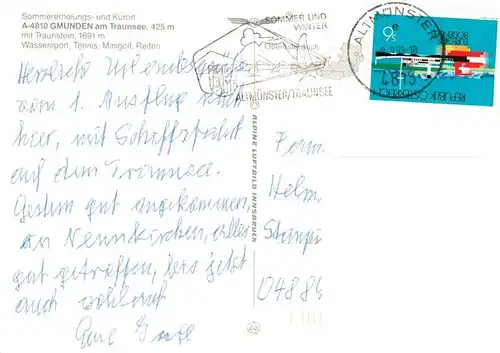 Sommererholungs- und Kurort
A-4810 GMUNDEN am Traunsee, 425 m
mit Traunstein, 1691 m
Wassersport, Tennis, Minigolf, Reiten
Herzliche Urlaubsgrüße
vom 1. Ausflug
hier, mit Schiffsfahrt
auf dem Traunsee.
Gestern gut angekommen
in Neunkirchen, alles
gut getroffen, bis jetzt
auch wohlauf
SOMMER UND
WINTER
Oberösterreich
ALTMÜNSTER/TRAUNSEE
ALTMÜNSTER
4813
9S
REPUBLIK ÖSTERREICH
ALPINE LUFTBILD INNSBRUCK
Fam.
Helm